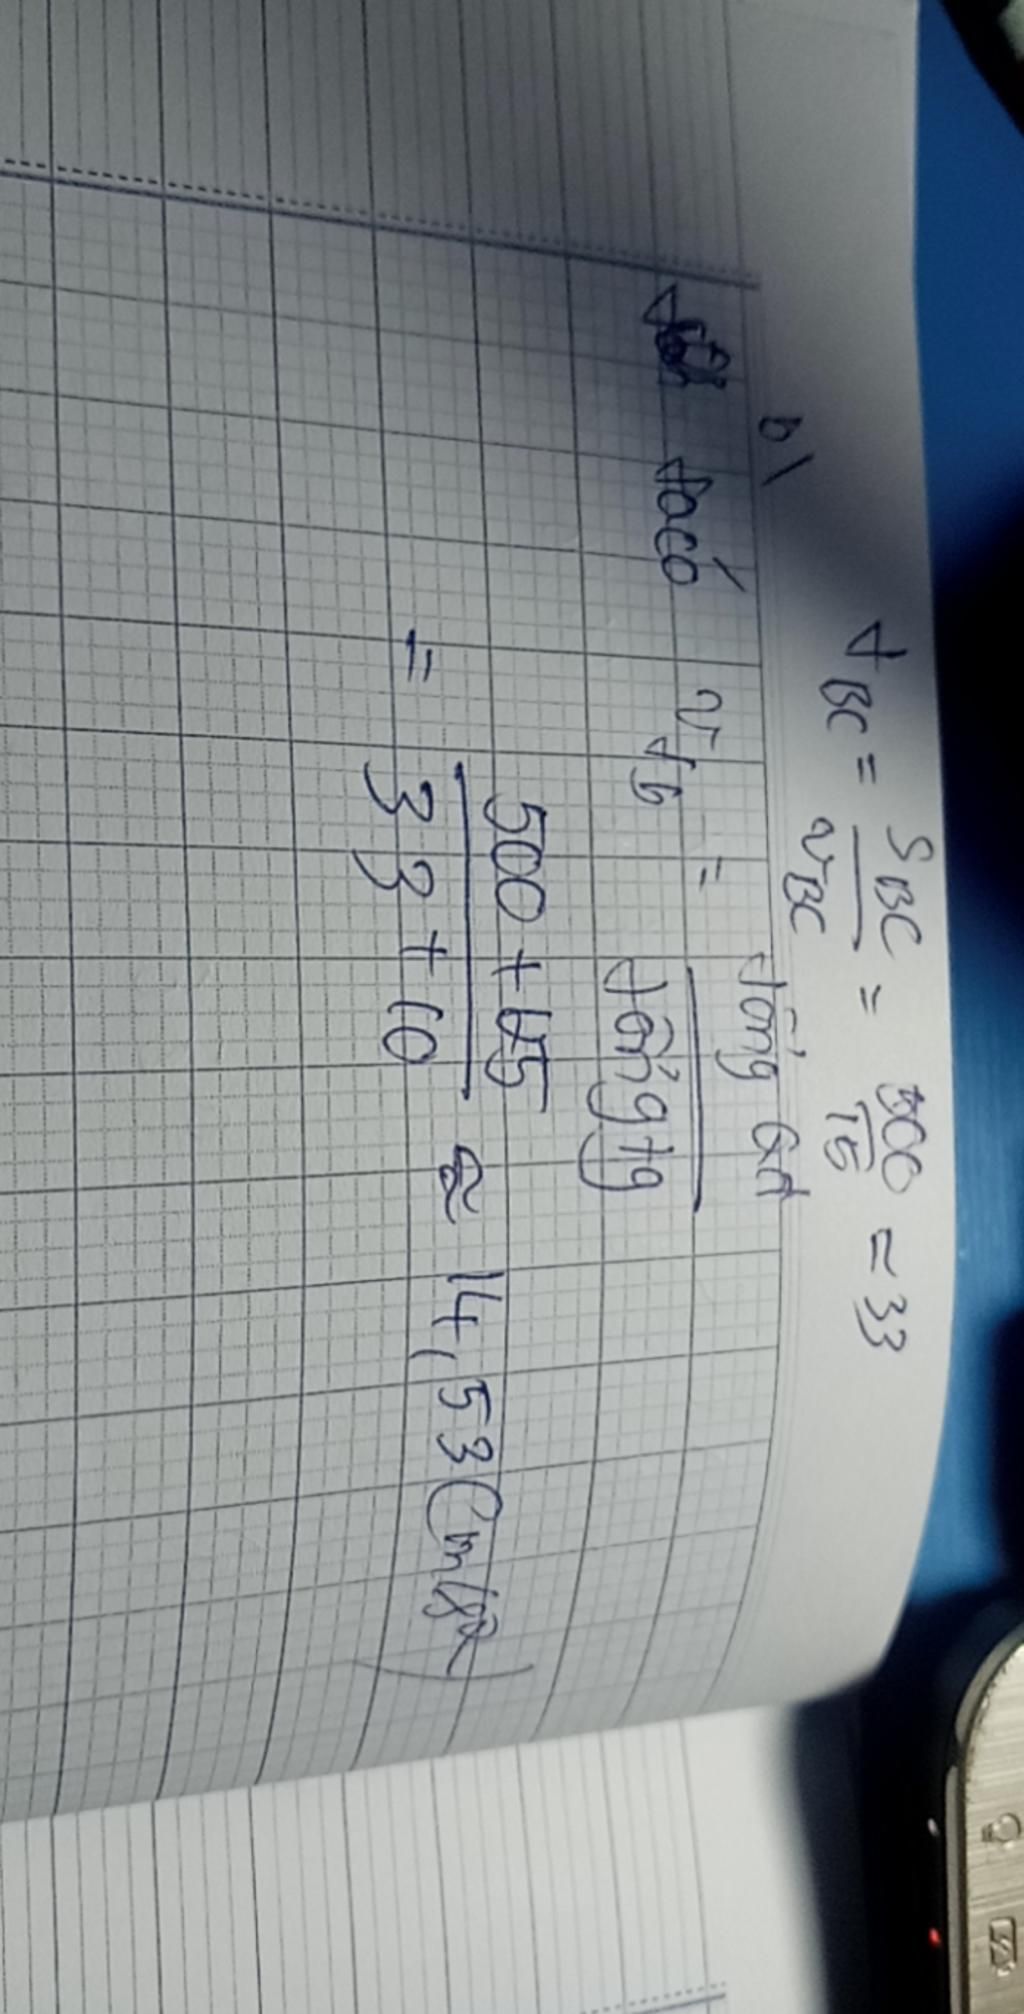 t BC = S BC / v BC = 500 / 15 = 33
b)
ta có v tb = tổng qđ / tổng tg
= 500 + 125 / 33 + 10 ≈ 14,53 (m/s)